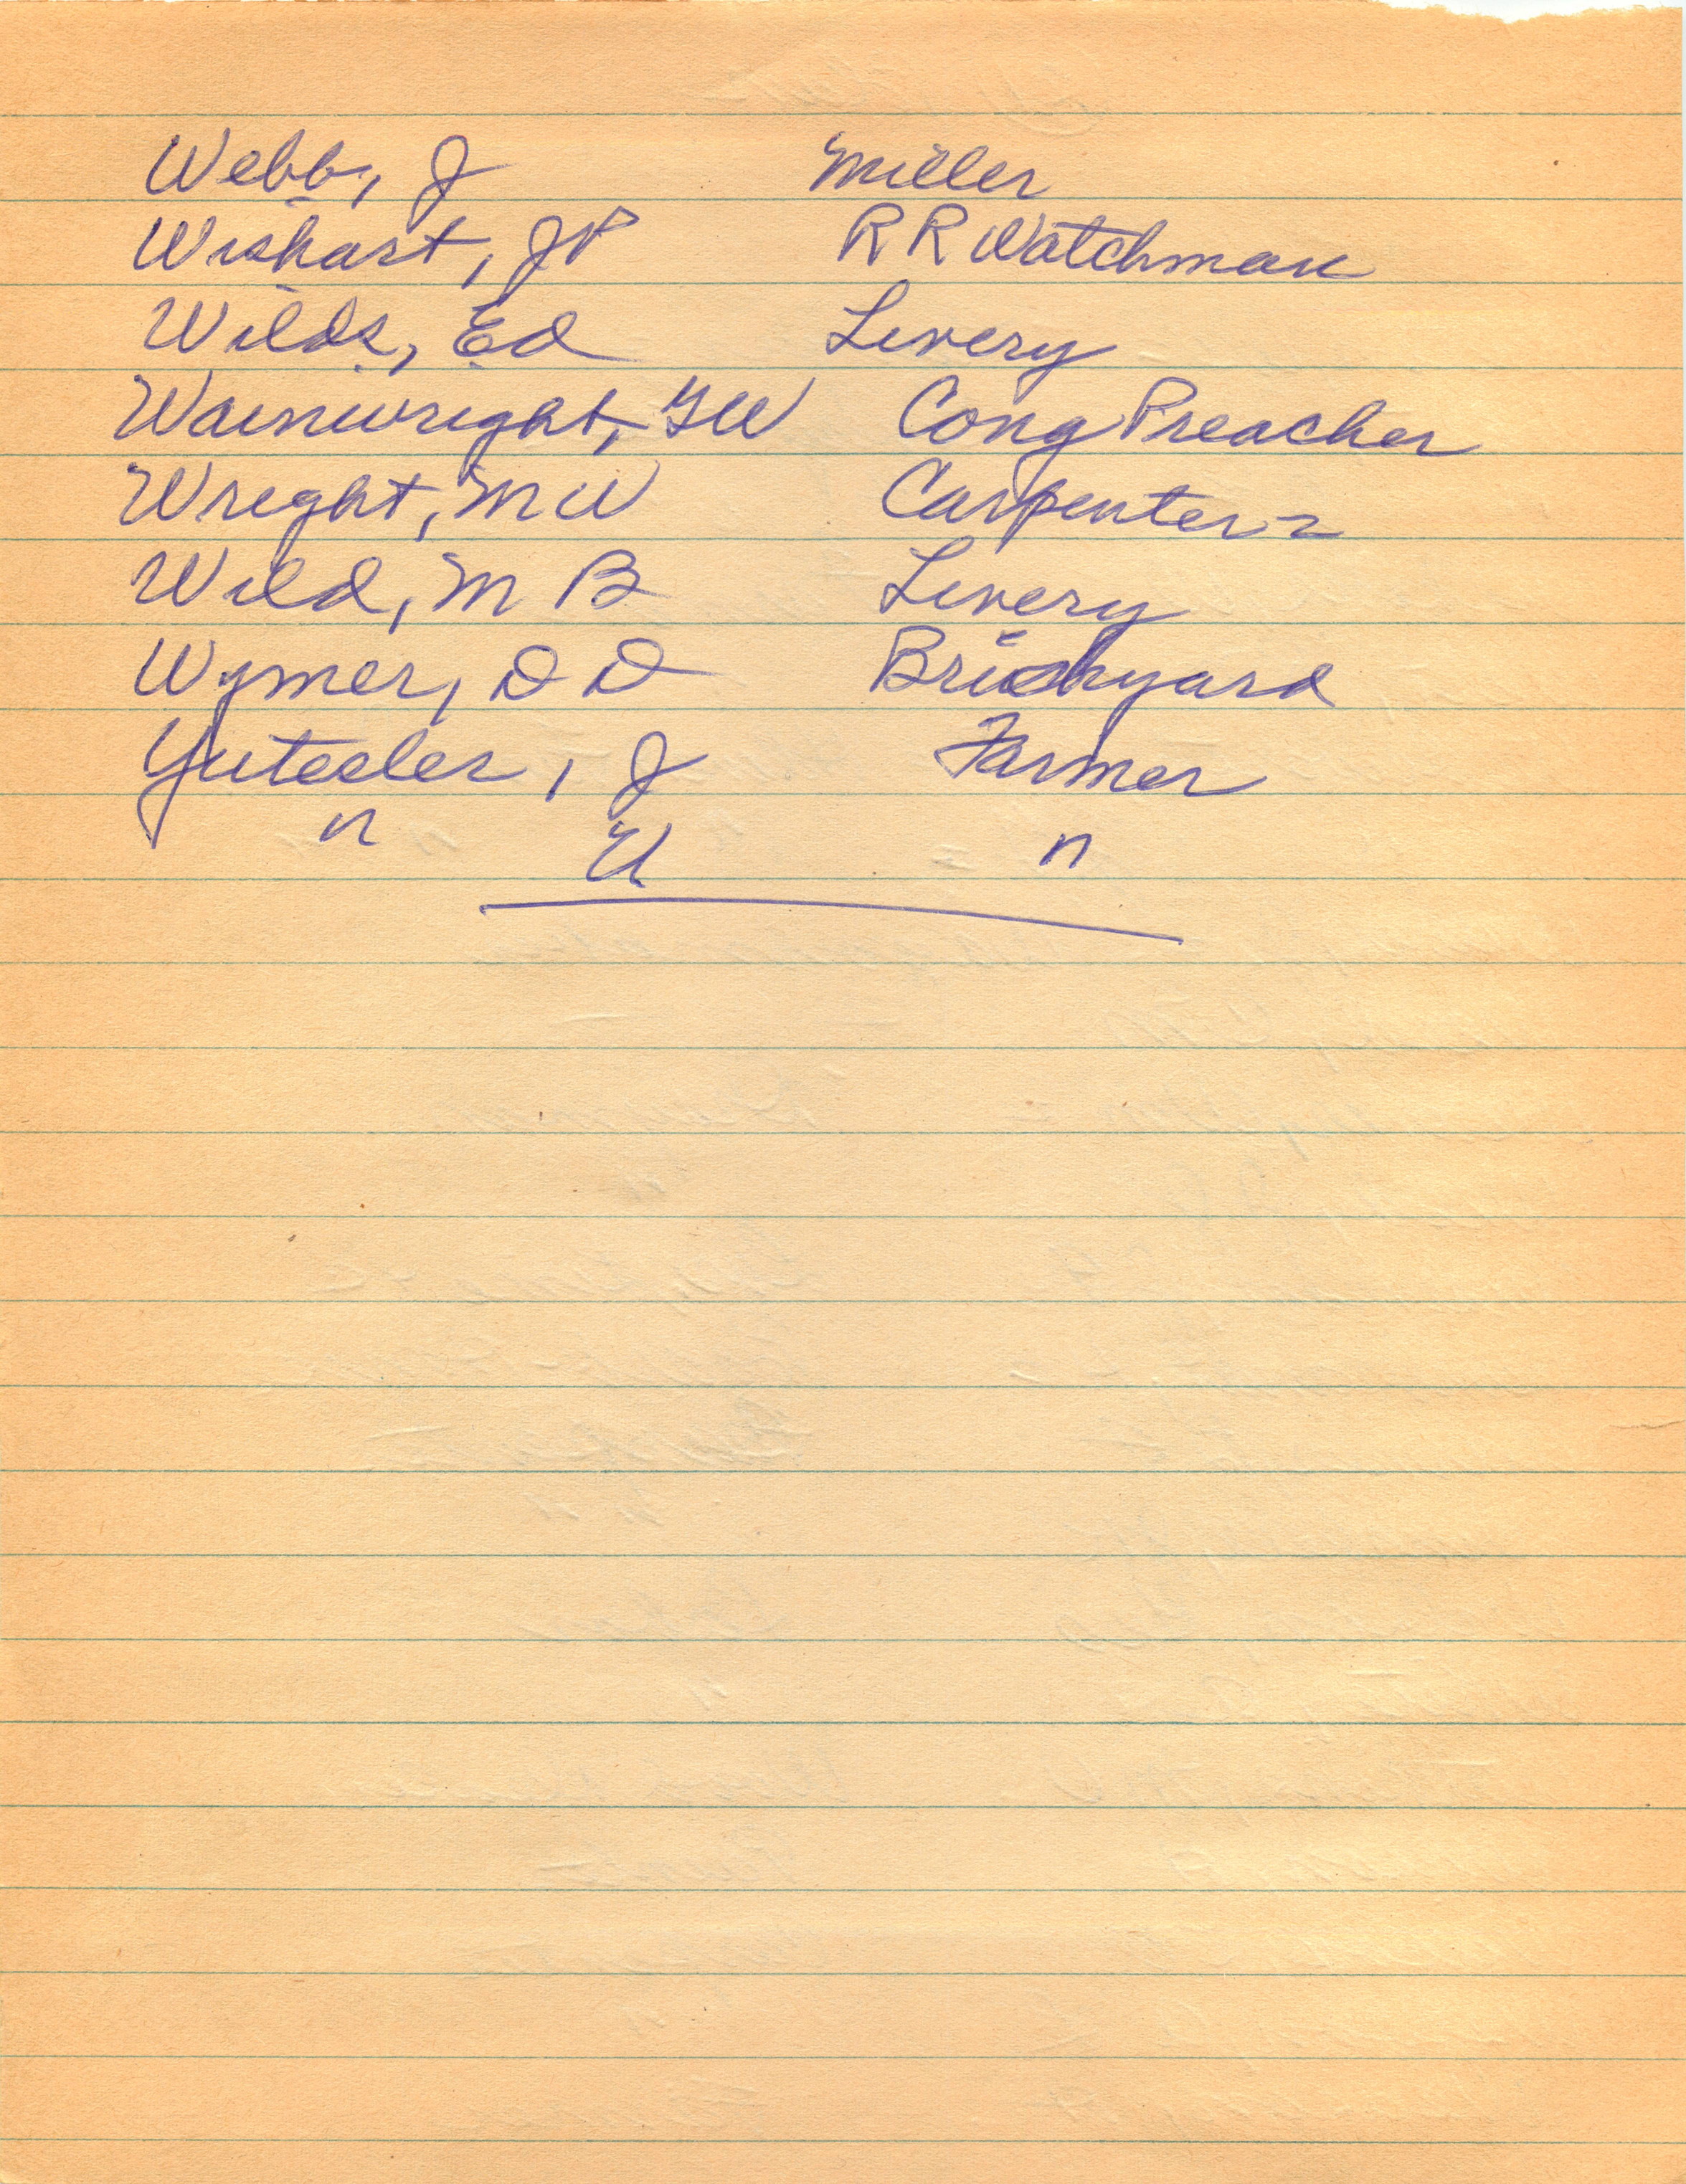 Webb, J Miller
Wishart, JP R R Watchman
Wilds, Ed Livery
Wainwright, GW Cong Preacher
Wright, M W Carpenter
Wild, M B Livery
Wymer, D D Brickyard
J Farmer
" "